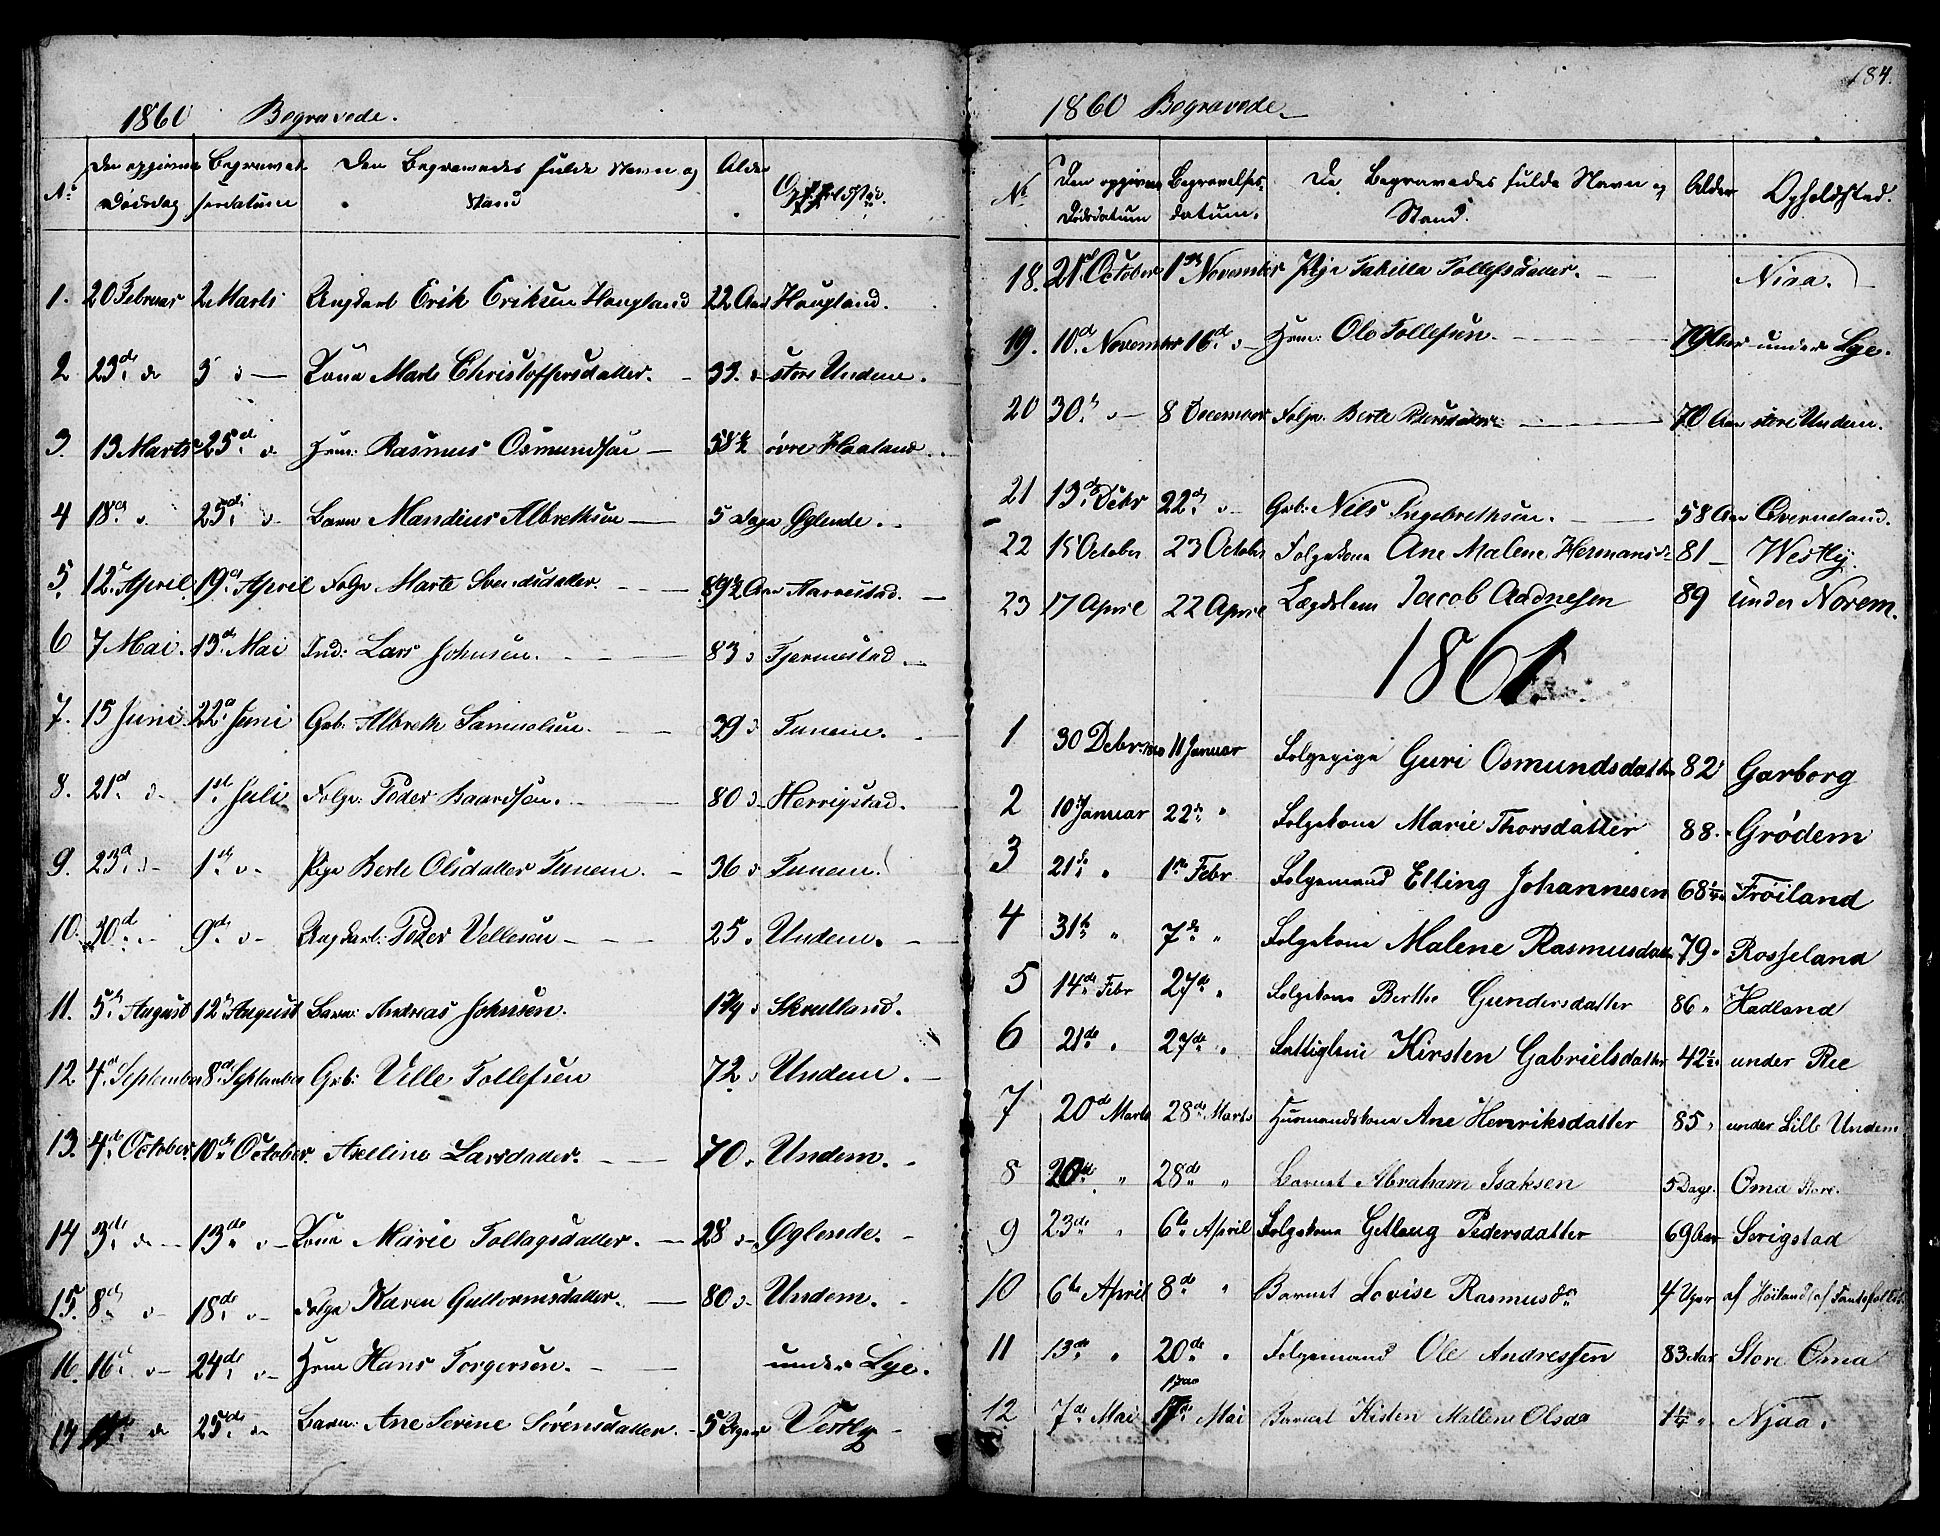 1860 Begravede.
No Den opgivne Dødsdag Begravelsesdatum Den Begravedes fulde Navn og Stand Alder Opholdsted.
1. 20 Februar 2 Marts Ungkarl Erik Eriksen Haugland 22 Aar Haugland.
2 23d do 5 do Kone Marte Christoffersdatter. 33. do store Undem.
3. 13 Marts 25d do Hmn: Rasmus Osmundsen 58½ øvre Haaland.
4 18d do 25d do Barn Mandius Albrethsen 5 Dage Øglende.
5. 12 April 19d April Folge Marte Svendsdatter. 89½ Aar Aarrestad.
6 7 Mai. 13d Mai Ind: Lars Johnsen. 83 do Tjermestad.
7. 15 Juni 22d Juni Grb: Albreth Samuelsen. 39 do Tunem.
8. 21d do 1st Juli Folge: Peder Baardsen. 80 do Herrigstad.
9. 23d do 1st do Pige Berte Olsdatter Tunem. 36 do Tunem.
10. 30d do 9d do Ungkarl: Peder Vellesen 25. Undem.
11. 5d August 12d August Barn: Andreas Johnsen. 1¾ do Skrulland.
12. 4d September 8d September Grb: Velle Tollefsen 72 do Undem.
13. 4d October 10d October. Axeline Larsdatter. 70. Undem.
14 3de do 13de do Kone Marie Tollagsdatter. 28 do Øglende.
15. 8d do 18de do Folge Karen Guttormsdatter. 80 do Undem.
16. 16d do 24de do Hmn Hans Torgersen. under Lye.
17 do 25de do Barn: Ane Serine Sørensdatter. 5 Uger Vestly
184.
1860 Begravede.
No Den opgivne Dødsdatum Begravelsesdatum. De Begravedes fulde Navn og Stand. Alder Opholdsted.
18. 21d October 1st November Pige Tahille Tollefsdatter. Niaa.
19. 10d November 16d do Hmn: Ole Tollefsen. 79 Aar under Lye.
20 30d do 8 December Folge: Berte 70 Aar store Undem.
21 13d Debr 22d do Grb: Nils Ingebrethsen. 58 Aar Qverneland.
22 15 October 23 October Folgekone Ane Malene Hermansd 81 Westly.
23 17 April 22 April Lægdslem Jacob Aadnesen 89 under Norem.
1861.
1 30 Debr. 11 Januar Folgepige Guri Osmundsdatter 82 Garborg
2 10 Januar 22 " Folgekone Marie Thorsdatter 88. Grødem
3 21de " 1ste Febr Folgemand Elling Johannesen 68½ Frøiland
4 31te " 7de " Folgekone Malene Rasmusdatter 79 " Rosseland
5 14de Febr 27de " Folgekone Berthe Gundersdatter 86 " Hadland
6 21de " 27de " Fattiglem Kirsten Gabrielsdatter 42½ under Ree
7 20de Marts 28de Marts Husmandskone Ane Henriksdatter 85 " under Lille Undem
8 20de " 28de " Barnet Abraham Isaksen 5 Dage. Oma Store.
9 23de " 6te April Folgekone Gitlaug Pedersdatter 69 Aar Serigstad
10 6te April 8de " Barnet Lovise Rasmusda 4 Uger af Høiland (af Fantefølget)
11 13de " 20de " Folgemand Ole Andressen 83 Aar Store Oma
12 7de Mai 17de Mai Barnet Kisten Mallene Olsda 1¼ " Njaa.